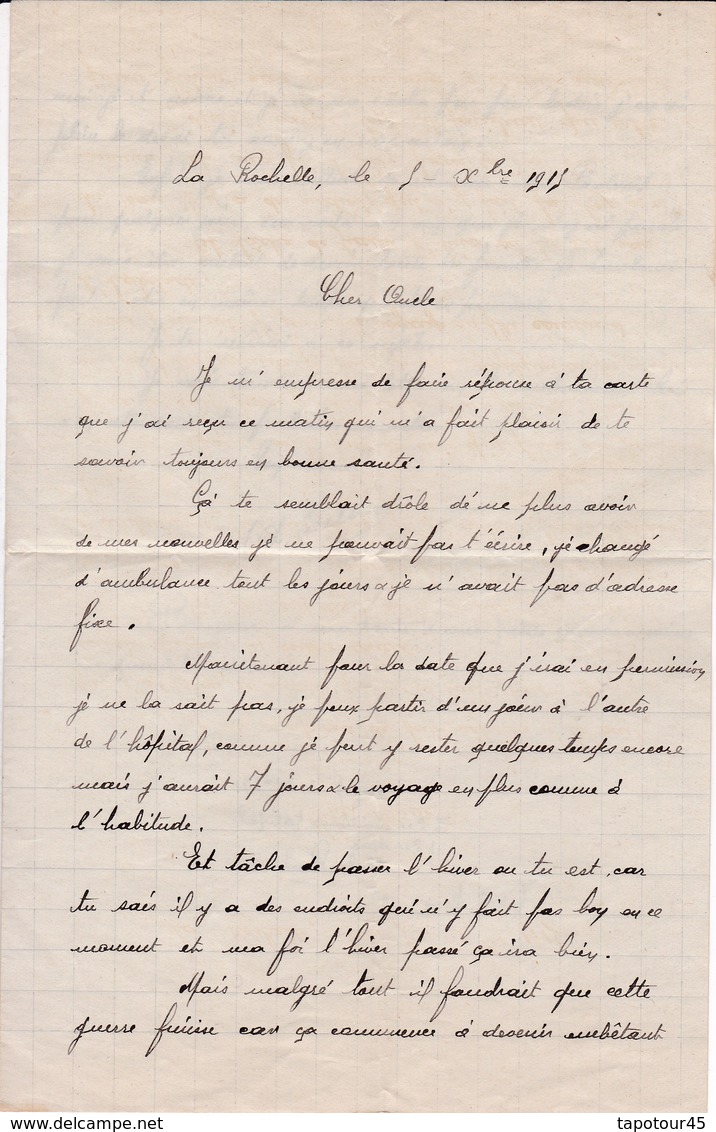 La Rochelle, le 5 - Xbre 1915
Cher Oncle
Je m'empresse de faire réponse à ta carte
que j'ai reçu ce matin qui m'a fait plaisir de te
savoir toujours en bonne santé.
Çà te semblait drôle dé ne plus avoir
de mes nouvelles jé ne pouvait pas t'écrire, jé changé
d'ambulance tout les jours & je n'avait pas d'adresse
fixe.
Maintenant pour la date que j'irai en permission
je ne la sait pas, je peux partir d'un jour à l'autre
de l'hôpital, comme jé peut y rester quelques temps encore
mais j'aurait 7 jours & le voyage en plus comme à
l'habitude.
Et tâche de passer l'hiver ou tu est, car
tu sais il y a des endroits qui n'y fait pas bon en ce
moment et ma foi l'hiver passé ça ira bien.
Mais malgré tout il faudrait que cette
guerre finisse car ça commence à devenir embêtant
tapotour45